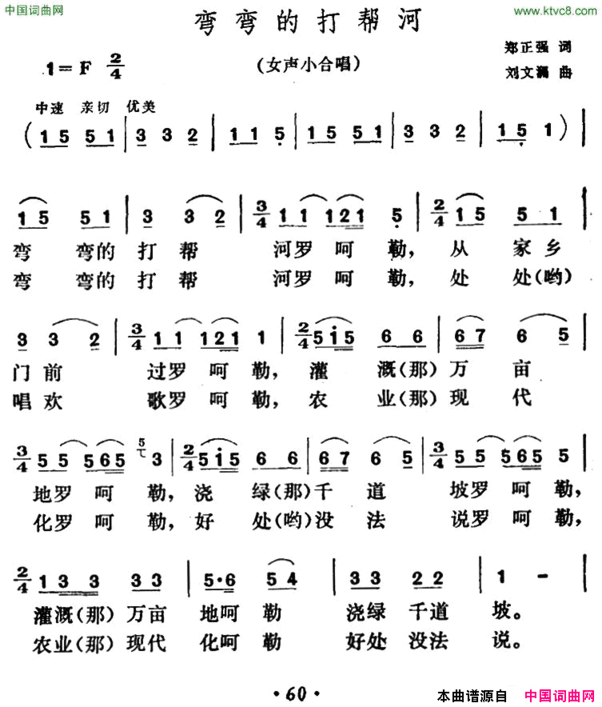 中国词曲网
www.ktvc8.com
弯弯的打帮河
1=F 2/4
（女声小合唱）
郑正强 词
刘文 曲
中速 亲切 优美
( 1 5 5 1 | 3 3 2 | 1 1 5 | 1 5 5 1 | 3 3 2 | 1 5 1 )
1 5 5 1 | 3 3 2 | 3/4 1 1 1 121 5 | 2/4 1 5 5 1 |
弯 弯的 打 帮 河罗 呵 勒, 从 家 乡
弯 弯的 打 帮 河罗 呵 勒, 处 处(哟)
3 3 2 | 3/4 1 1 1 121 1 | 2/4 5i5 6 6 | 6 7 6 |
门 前 过罗 呵 勒, 灌 溉(那)万 亩
唱 欢 歌罗 呵 勒, 农 业(那)现 代
3/4 5 5 5 565 5 3 | 2/4 5i5 6 6 | 6 7 6 | 3/4 5 5 5 565 5 |
地罗 呵 勒, 浇 绿(那)千 道 坡罗 呵 勒,
化罗 呵 勒, 好 处(哟)没 法 说罗 呵 勒,
2/4 1 3 3 3 3 | 5·6 5 4 | 3 3 2 2 | 1 - ‖
灌溉(那) 万亩 地呵 勒 浇绿 千道 坡。
农业(那) 现代 化呵 勒 好处 没法 说。
· 60 ·
本曲谱源自 中国词曲网